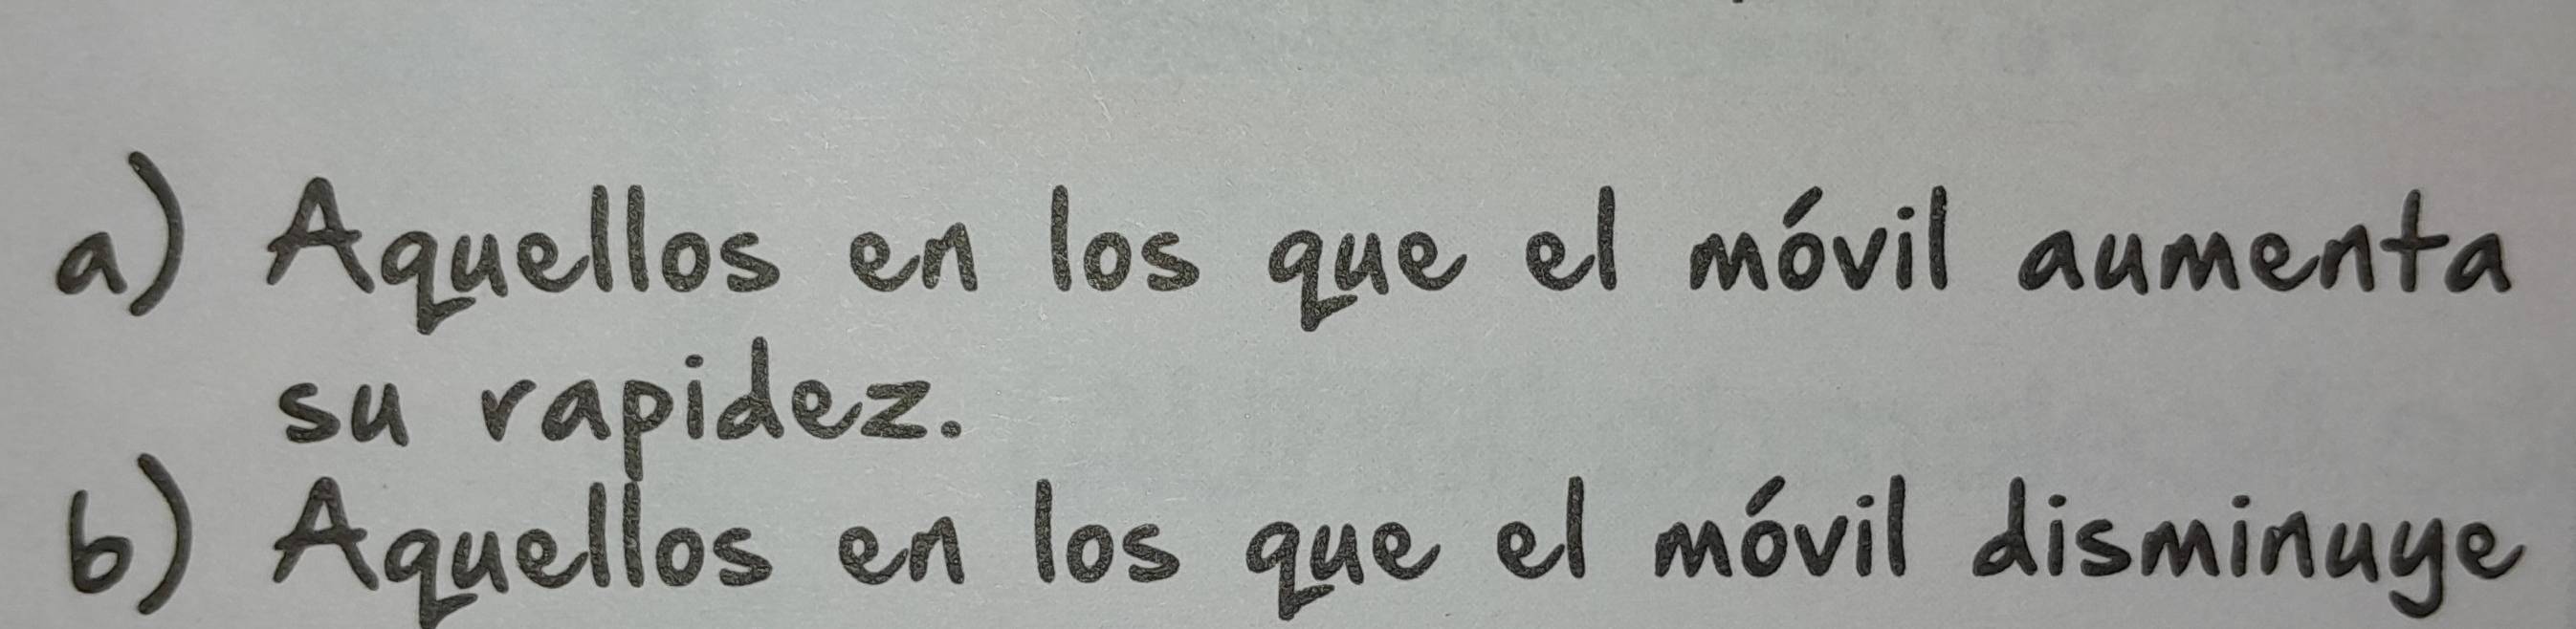 a) Aquellos en los que el móvil aumenta
su rapidez.
b) Aquellos en los que el móvil disminuye